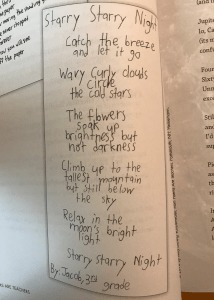 Starry Starry Night
Catch the breeze
and let it go
Wavy Curly clouds
circle
the cold stars
The flowers
soak up
brightness but
not darkness
Climb up to the
tallest mountain
but still below
the sky
Relax in the
moon's bright
light
Starry Starry Night
By: Jacob, 3rd
grade